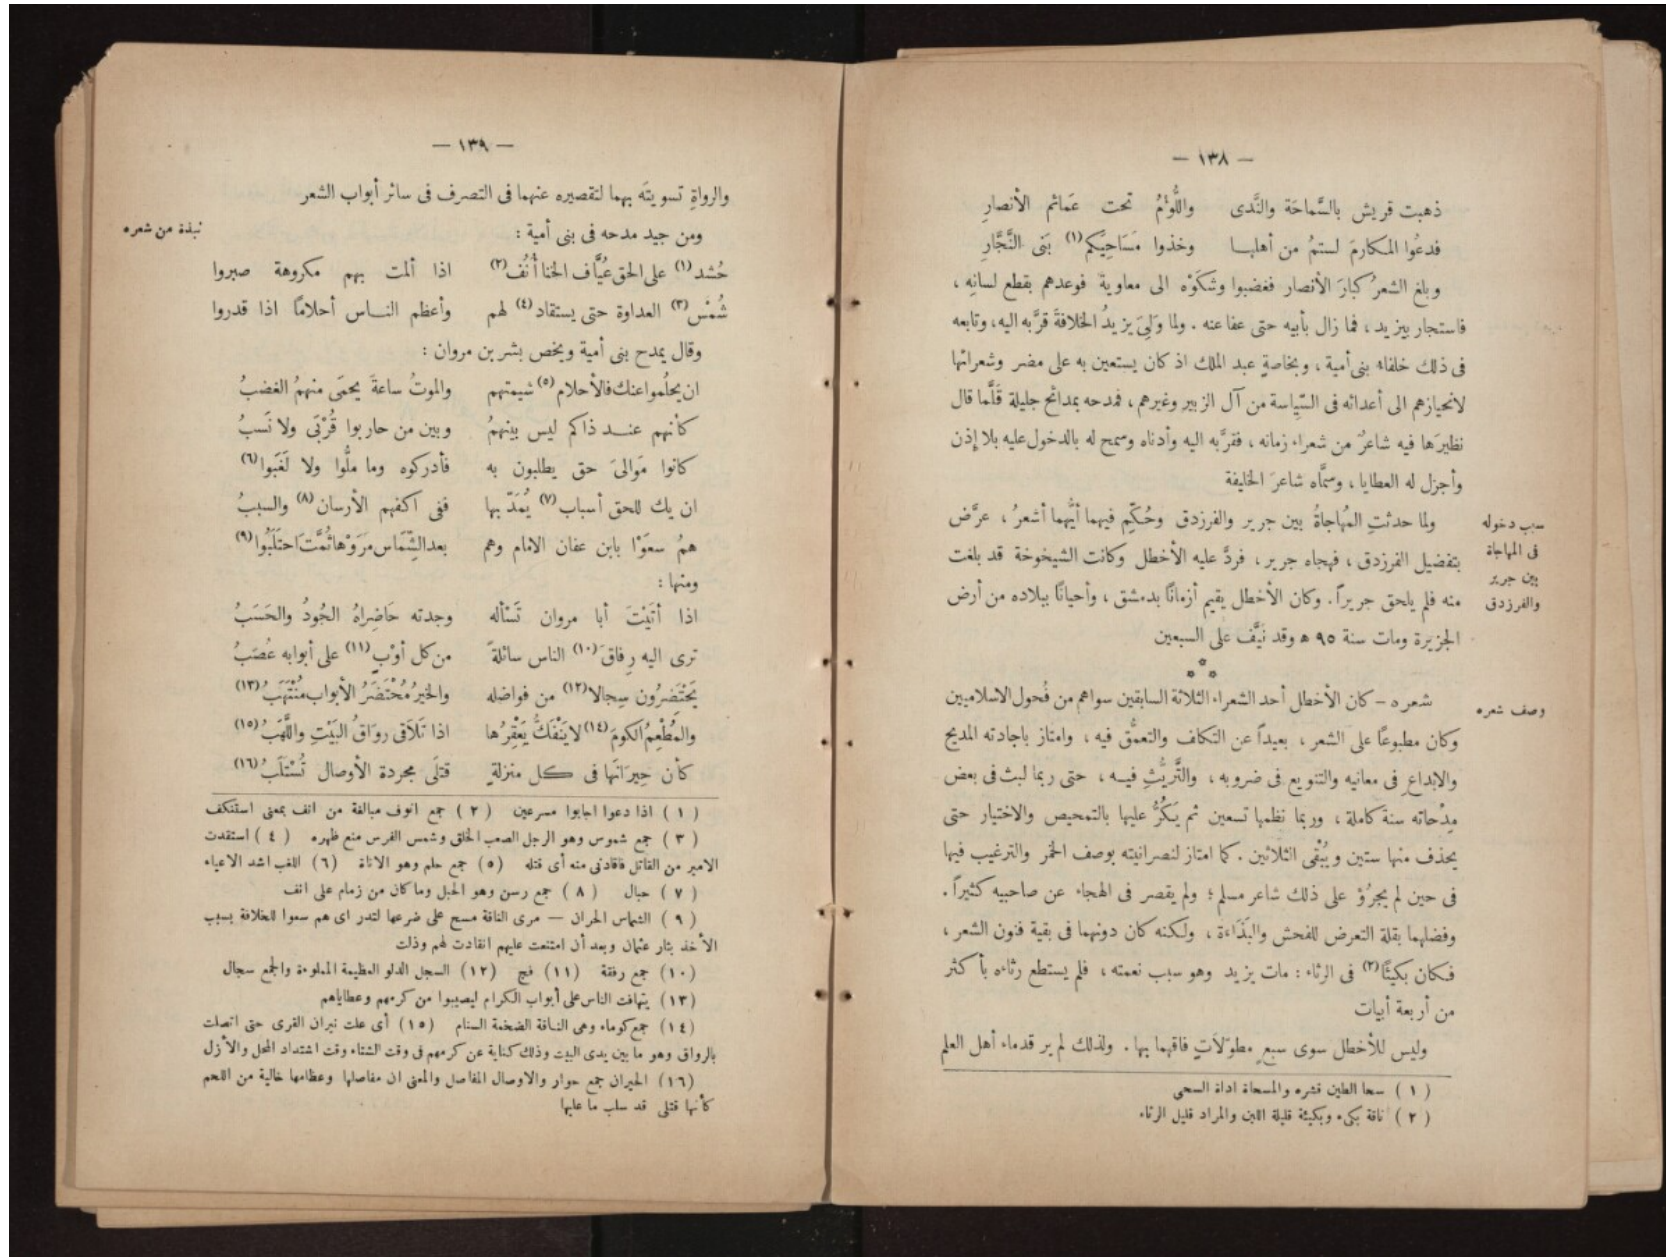 — ١٣٨ —
ذهبت قريش بالسَّماحَة والنَّدى واللُّؤمُ تحت عَمائم الأنصارِ
فدعُوا المكارمَ لستمُ من أهلها وخذوا مَسَاحِيَكم (١) بَنى النَّجَّارِ
وبلغ الشعرُ كبارَ الأنصار فغضبوا وشكَوْه الى معاوية فوعدهم بقطع لسانِه ،
فاستجار بيزيد ، فما زال بأبيه حتى عفا عنه . ولما وَلِىَ يزيدُ الخلافةَ قرَّبه اليه ، وتابعه
فى ذلك خلفاء بنى أمية ، وبخاصةٍ عبد الملك اذ كان يستعين به على مضر وشعرائها
لانحيازهم الى أعدائه فى السِّياسة من آل الزبير وغيرهم ، فمدحه بمدائح جليلة قَلَّما قال
نظيرَها فيه شاعرٌ من شعراء زمانه ، فقرَّبه اليه وأدناه وسمح له بالدخول عليه بلا إذن
وأجزل له العطايا ، وسمَّاه شاعرَ الخليفة
سبب دخوله
فى المهاجاة
بين جرير
والفرزدق
ولما حدثتِ المُهاجاةُ بين جرير والفرزدق وحُكِّم فيهما أيُّهما أشعرُ ، عرَّض
بتفضيل الفرزدق ، فهجاه جرير ، فردَّ عليه الأخطل وكانت الشيخوخة قد بلغت
منه فلم يلحق جريراً . وكان الأخطل يقيم أزمانًا بدمشق ، وأحيانًا ببلاده من أرض
الجزيرة ومات سنة ٩٥ ه وقد نَيَّف على السبعين
* * *
وصف شعره
شعره – كان الأخطل أحد الشعراء الثلاثة السابقين سواهم من فُحول الاسلاميين
وكان مطبوعًا على الشعر ، بعيداً عن التكلف والتعمُّق فيه ، وامتاز باجادته المديح
والابداعِ فى معانيه والتنويع فى ضروبه ، والتَّريُّثِ فيه ، حتى ربما لبث فى بعض
مِدْحاته سنةً كاملة ، وربما نظمها تسعين ثم يَكُرُّ عليها بالتمحيص والاختيار حتى
يحذف منها ستين ويُبْقى الثلاثين . كما امتاز لنصرانيته بوصف الخمر والترغيب فيها
فى حين لم يجرُؤ على ذلك شاعر مسلم ؛ ولم يقصر فى الهجاء عن صاحبيه كثيراً .
وفضلهما بقلة التعرض للفحش والبَذَاءة ، ولكنه كان دونهما فى بقية فنون الشعر ،
فكان بكيئًا (٢) فى الرثاء : مات يزيد وهو سبب نعمته ، فلم يستطع رثاءه بأكثر
من أربعة أبيات
وليس للأخطل سوى سبعِ مطوّلاَتٍ فاقهما بها . ولذلك لم ير قدماء أهل العلم
( ١ ) سحا الطين قشره والمسحاة اداة السحى
( ٢ ) ناقة بكىء وبكيئة قليلة اللبن والمراد قليل الرثاء
— ١٣٩ —
والرواةِ تسويتَه بهما لتقصيره عنهما فى التصرف فى سائر أبواب الشعر
نبذة من شعره
ومن جيد مدحه فى بنى أمية :
حُشد (١) على الحق عُيَّاف الخنا أُنُف (٢) اذا ألمت بهم مكروهة صبروا
شُمْس (٣) العداوة حتى يستقاد (٤) لهم وأعظم الناس أحلامًا اذا قدروا
وقال يمدح بنى أمية ويخص بشر بن مروان :
ان يحلُموا عنك فالأحلام (٥) شيمتهم والموتُ ساعةَ يحمَى منهمُ الغضبُ
كأنهم عند ذاكم ليس بينهمُ وبين من حاربوا قُرْبَى ولا نَسبُ
كانوا مَوالىَ حق يطلبون به فأدركوه وما ملُّوا ولا لَغَبوا (٦)
ان يك للحق أسباب (٧) يُمَدّ بها ففى اكفهم الأرسان (٨) والسببُ
همُ سعَوْا بابن عفان الامام وهم بعد الشِّمَاس مَرَوْها ثُمَّتَ احتَلَبُوا (٩)
ومنها :
اذا أتَيْتَ أبا مروان تَسْأله وجدته حَاضِراهُ الجُودُ والحَسَبُ
ترى اليه رِفاقَ (١٠) الناس سائلةً من كل أوْبٍ (١١) على أبوابه عُصَبُ
يَحْتَضِرُون سِجالا (١٢) من فواضله والخيرُ مُحْتَضَرُ الأبواب مُنْتَهَبُ (١٣)
والمُطْعِمُ الكومَ (١٤) لا يَنْفَكُّ يَعْقِرُها اذا تَلاَقى روَاقُ البَيْتِ واللَّهَبُ (١٥)
كأن حِيرَانَها فى كل منزلةٍ قتلَى مجردة الأوصال تُسْتَلَبُ (١٦)
( ١ ) اذا دعوا اجابوا مسرعين ( ٢ ) جمع انوف مبالغة من انف بمعنى استنكف
( ٣ ) جمع شموس وهو الرجل الصعب الخلق وشمس الفرس منع ظهره ( ٤ ) استقدت
الامير من القاتل فاقادنى منه أى قتله ( ٥ ) جمع حلم وهو الاناة ( ٦ ) اللغب اشد الاعياء
( ٧ ) حبال ( ٨ ) جمع رسن وهو الحبل وما كان من زمام على انف
( ٩ ) الشماس الحران — مرى الناقة مسح على ضرعها لتدر اى هم سعوا للخلافة بسبب
الأخذ بثار عثمان وبعد أن امتنعت عليهم انقادت لهم وذلت
(١٠) جمع رفقة (١١) فج (١٢) السجل الدلو العظيمة المملوءة والجمع سجال
(١٣) يتهافت الناس على أبواب الكرام ليصيبوا من كرمهم وعطاياهم
(١٤) جمع كوماء وهى الناقة الضخمة السنام (١٥) أى علت نيران القرى حتى اتصلت
بالرواق وهو ما بين يدى البيت وذلك كناية عن كرمهم فى وقت الشتاء وقت اشتداد المحل والأزل
(١٦) الحيران جمع حوار والاوصال المفاصل والمعنى ان مفاصلها وعظامها خالية من اللحم
كأنها قتلى قد سلب ما عليها